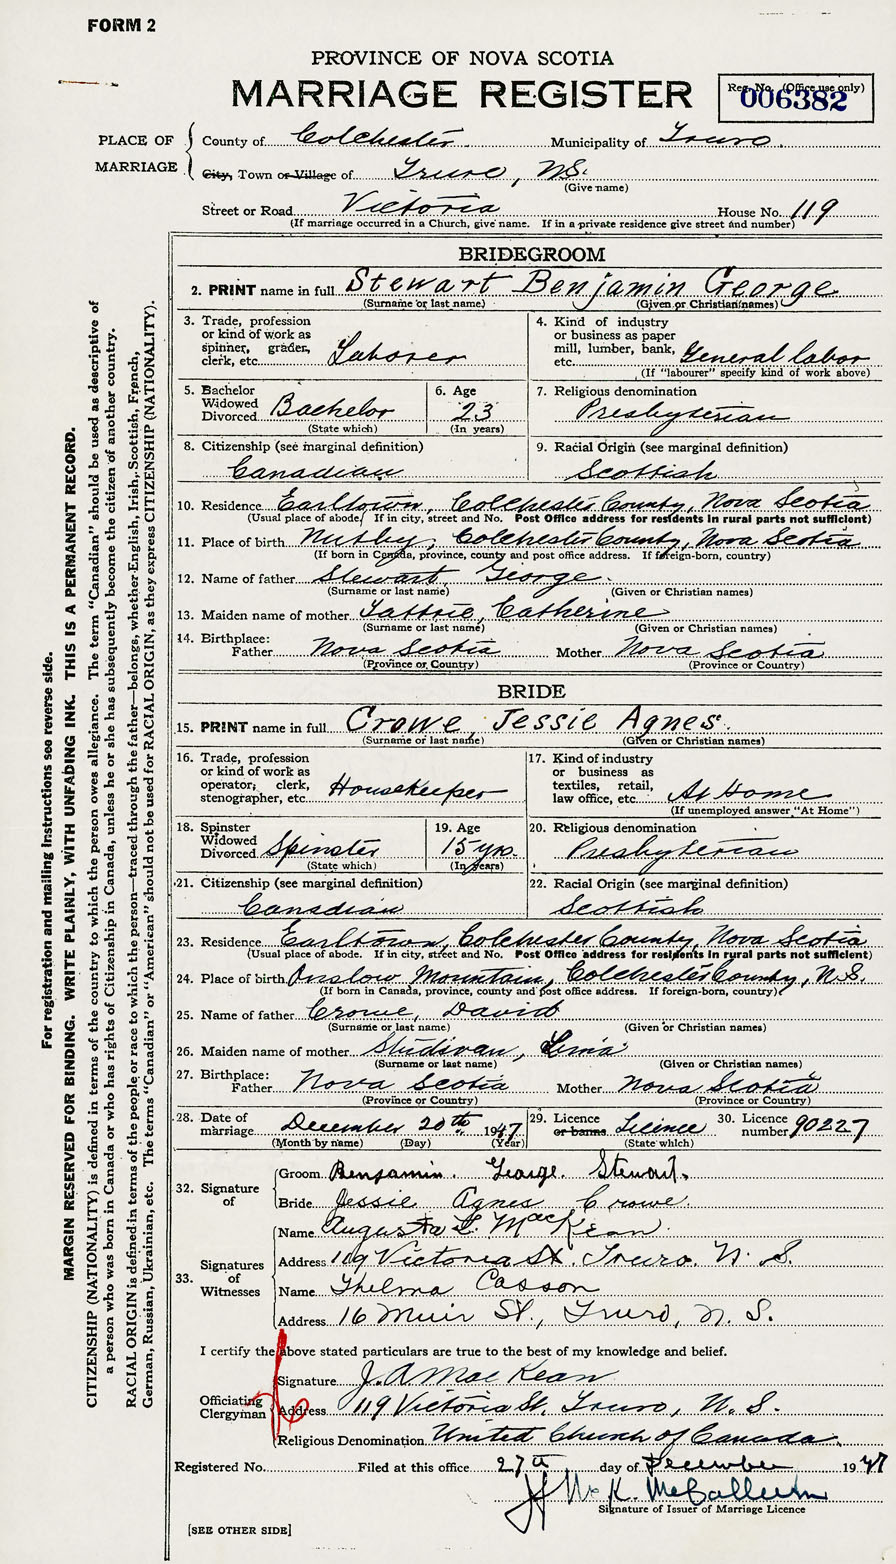 FORM 2
PROVINCE OF NOVA SCOTIA
MARRIAGE REGISTER
Reg. No. (Office use only)
006382
PLACE OF MARRIAGE
County of Colchester Municipality of Truro.
City, Town or Village of Truro, N.S.
(Give name)
Street or Road Victoria House No. 119
(If marriage occurred in a Church, give name. If in a private residence give street and number)
BRIDEGROOM
2. PRINT name in full Stewart Benjamin George
(Surname or last name) (Given or Christian names)
3. Trade, profession or kind of work as spinner, grader, clerk, etc. Laborer
4. Kind of industry or business as paper mill, lumber, bank, etc. General labor
(If "labourer" specify kind of work above)
5. Bachelor Widowed Divorced Bachelor
(State which)
6. Age 23
(In years)
7. Religious denomination
Presbyterian
8. Citizenship (see marginal definition)
Canadian
9. Racial Origin (see marginal definition)
Scottish
10. Residence Earltown, Colchester County, Nova Scotia
(Usual place of abode. If in city, street and No. Post Office address for residents in rural parts not sufficient)
11. Place of birth Nutby, Colchester County, Nova Scotia
(If born in Canada, province, county and post office address. If foreign-born, country)
12. Name of father Stewart, George.
(Surname or last name) (Given or Christian names)
13. Maiden name of mother Tattrie, Catherine
(Surname or last name) (Given or Christian names)
14. Birthplace:
Father Nova Scotia Mother Nova Scotia
(Province or Country) (Province or Country)
BRIDE
15. PRINT name in full Crowe, Jessie Agnes.
(Surname or last name) (Given or Christian names)
16. Trade, profession or kind of work as operator, clerk, stenographer, etc. Housekeeper
17. Kind of industry or business as textiles, retail, law office, etc. At Home
(If unemployed answer "At Home")
18. Spinster Widowed Divorced Spinster
(State which)
19. Age 15 yrs.
(In years)
20. Religious denomination
Presbyterian
21. Citizenship (see marginal definition)
Canadian
22. Racial Origin (see marginal definition)
Scottish
23. Residence Earltown, Colchester County, Nova Scotia
(Usual place of abode. If in city, street and No. Post Office address for residents in rural parts not sufficient)
24. Place of birth Onslow Mountain, Colchester County, N.S.
(If born in Canada, province, county and post office address. If foreign-born, country)
25. Name of father Crowe, David
(Surname or last name) (Given or Christian names)
26. Maiden name of mother
(Surname or last name) (Given or Christian names)
27. Birthplace:
Father Nova Scotia Mother Nova Scotia
(Province or Country) (Province or Country)
28. Date of marriage December 20th 1947
(Month by name) (Day) (Year)
29. Licence or banns Licence
(State which)
30. Licence number 90227
32. Signature of
Groom Benjamin. George. Stewart.
Bride Jessie Agnes Crowe.
33. Signatures of Witnesses
Name Augusta L. MacKean.
Address 119 Victoria St. Truro. N. S.
Name Thelma Casson
Address 16 Muir St., Truro, N. S.
I certify the above stated particulars are true to the best of my knowledge and belief.
Officiating Clergyman
Signature J. A MacKean
Address 119 Victoria St. Truro, N. S.
Religious Denomination United Church of Canada.
Registered No. Filed at this office 27th day of December 1947
McK. McCallum
Signature of Issuer of Marriage Licence
[SEE OTHER SIDE]
For registration and mailing instructions see reverse side.
MARGIN RESERVED FOR BINDING. WRITE PLAINLY, WITH UNFADING INK. THIS IS A PERMANENT RECORD.
CITIZENSHIP (NATIONALITY) is defined in terms of the country to which the person owes allegiance. The term "Canadian" should be used as descriptive of
a person who was born in Canada or who has rights of Citizenship in Canada, unless he or she has subsequently become the citizen of another country.
RACIAL ORIGIN is defined in terms of the people or race to which the person—traced through the father—belongs, whether English, Irish, Scottish, French,
German, Russian, Ukrainian, etc. The terms "Canadian" or "American" should not be used for RACIAL ORIGIN, as they express CITIZENSHIP (NATIONALITY).